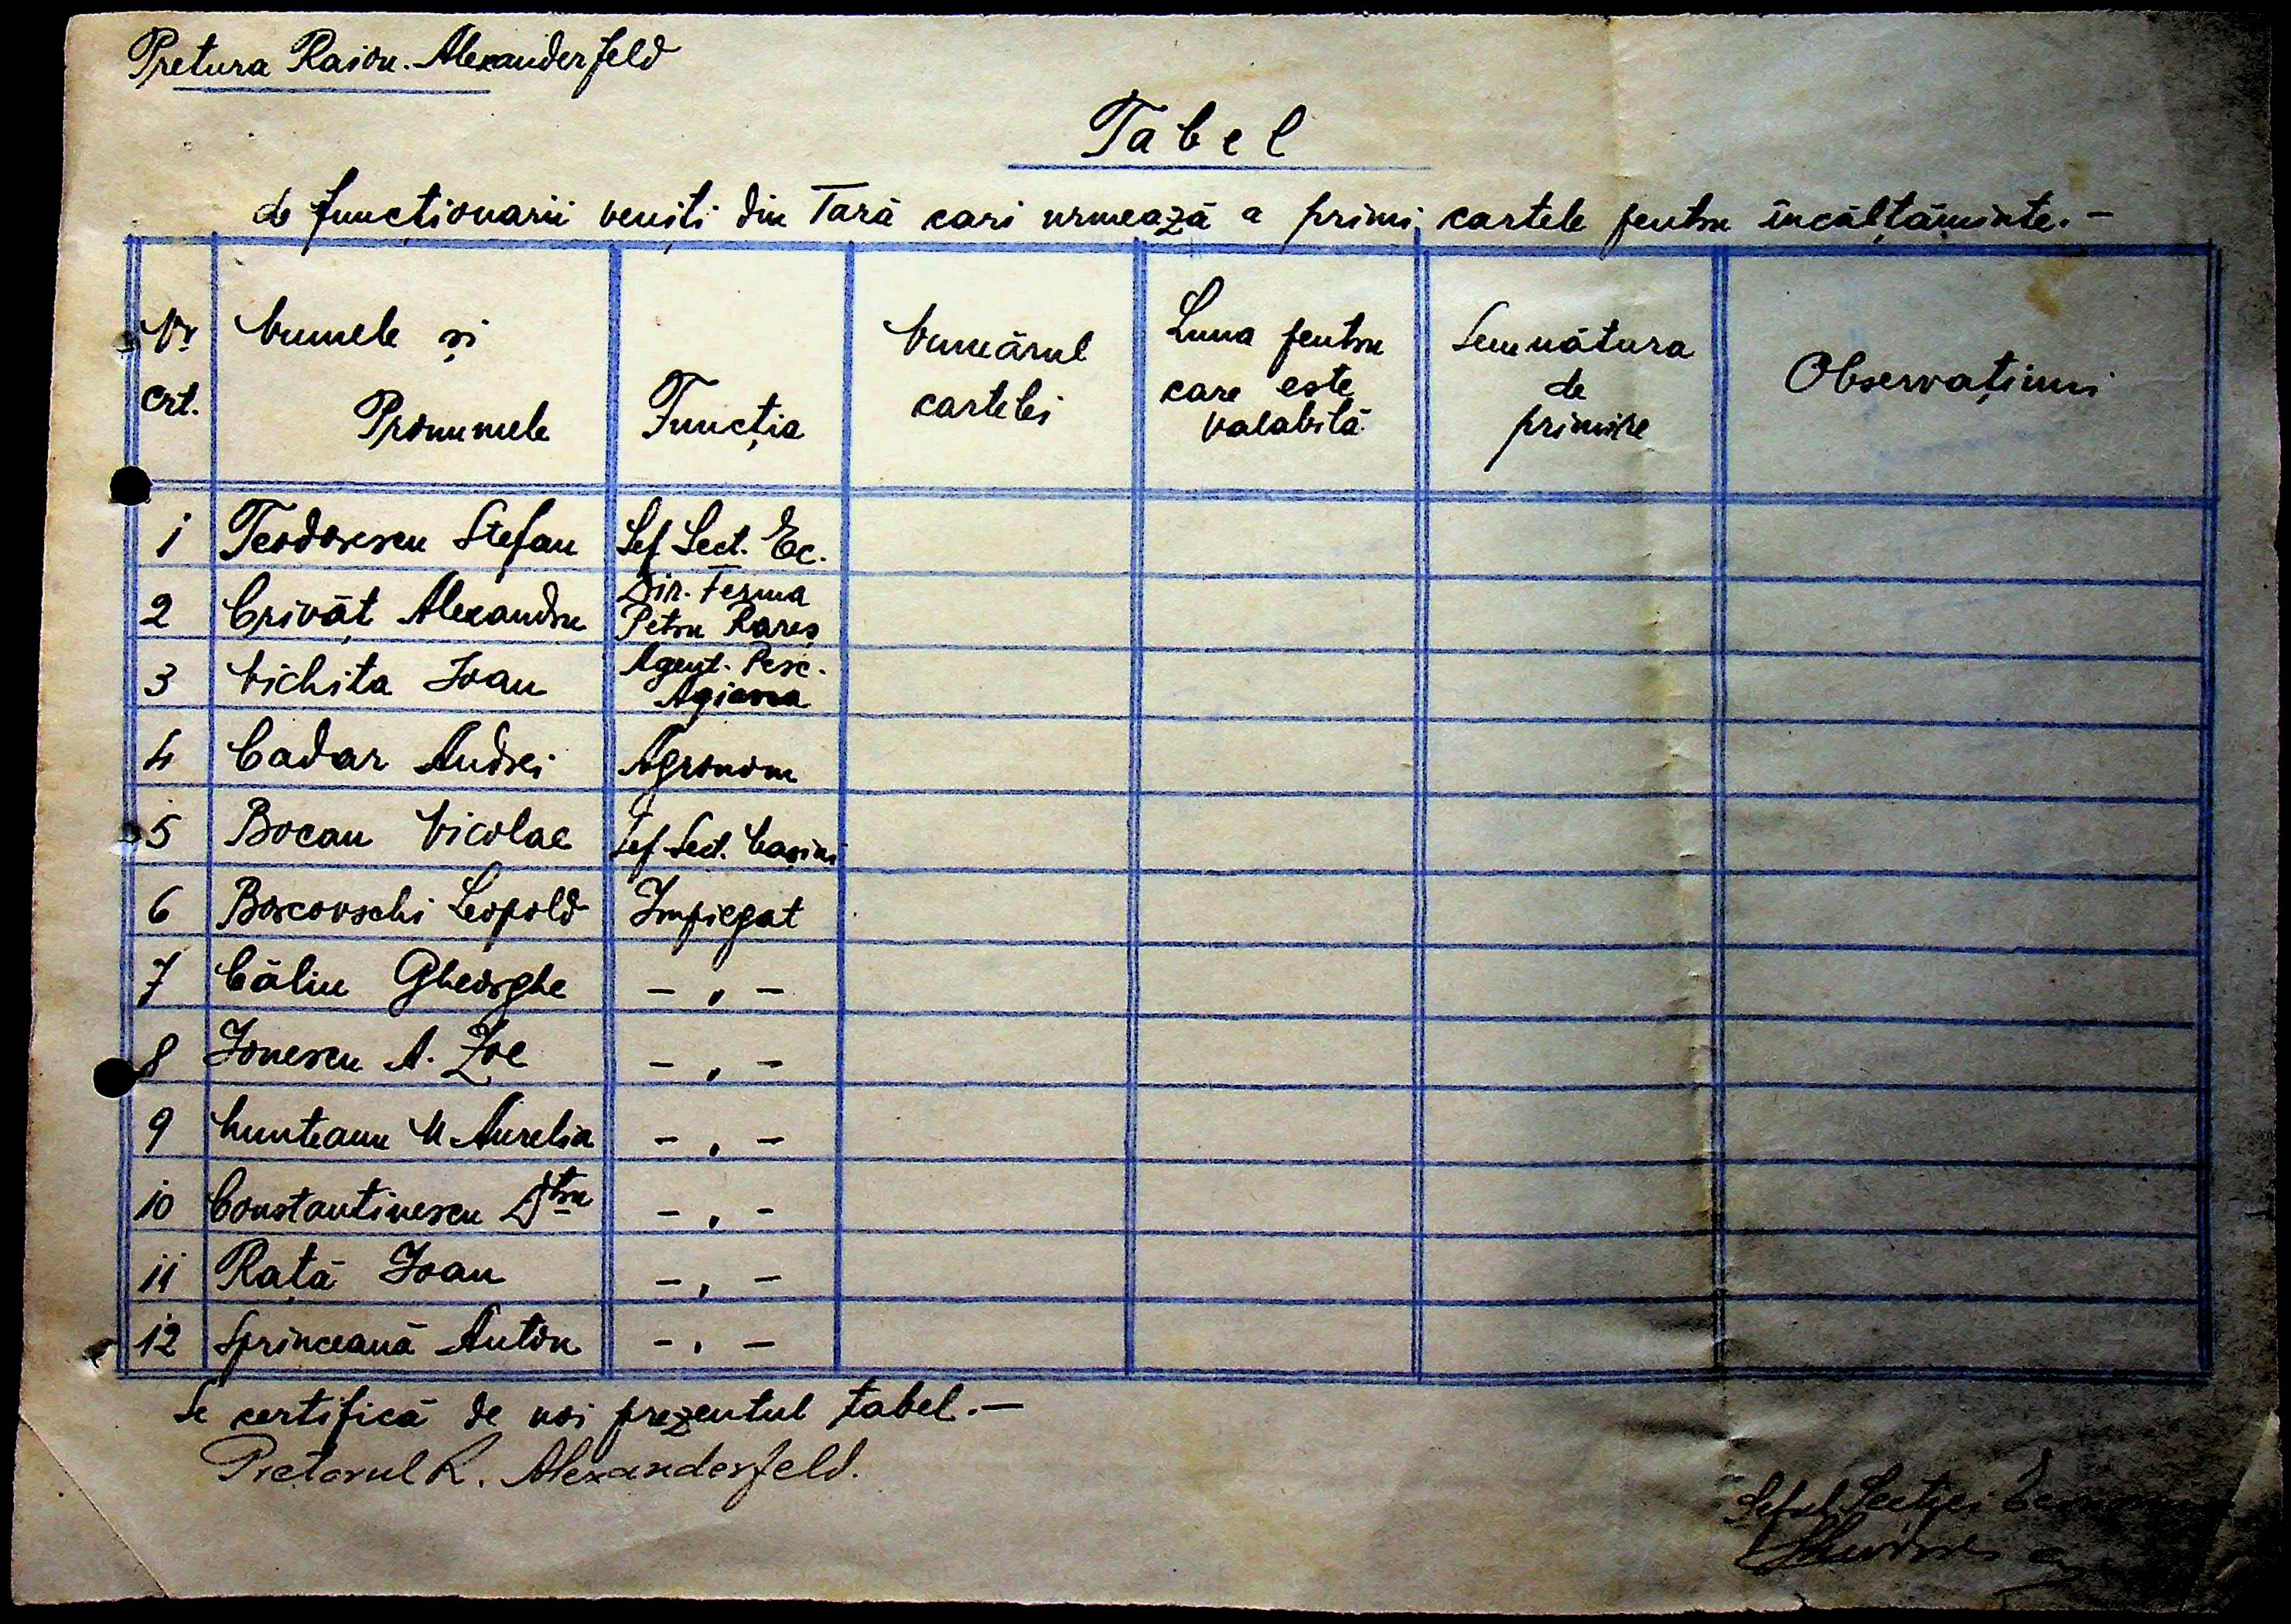 Pretura Raion. Alexanderfeld
Tabel
de funcționarii veniți din Tară cari urmează a primi cartele pentru încălțăminte.—
Nr. crt. Numele și Pronumele Funcția Numărul cartelei Luna pentru care este valabilă Semnătura de primire Observațiuni
1 Teodorescu Stefan Sef Sect. Ec.
2 Crivăț Alexandru Dir. Ferma Petru Rareș
3 Nichita Ioan Agent. Pesc.
4 Cadar Andrei Agronom
5 Bocan Nicolae Sef Sect.
6 Boscovschi Leopold Impiegat
7 Călin Gheorghe — „ —
8 Ionescu A. Zoe — „ —
9 Munteanu M Aurelia — „ —
10 Constantinescu Dtru — „ —
11 Rață Ioan — „ —
12 Sprinceană Anton — „ —
Se certifică de noi prezentul tabel.—
Pretorul R. Alexanderfeld.
Șeful Secției